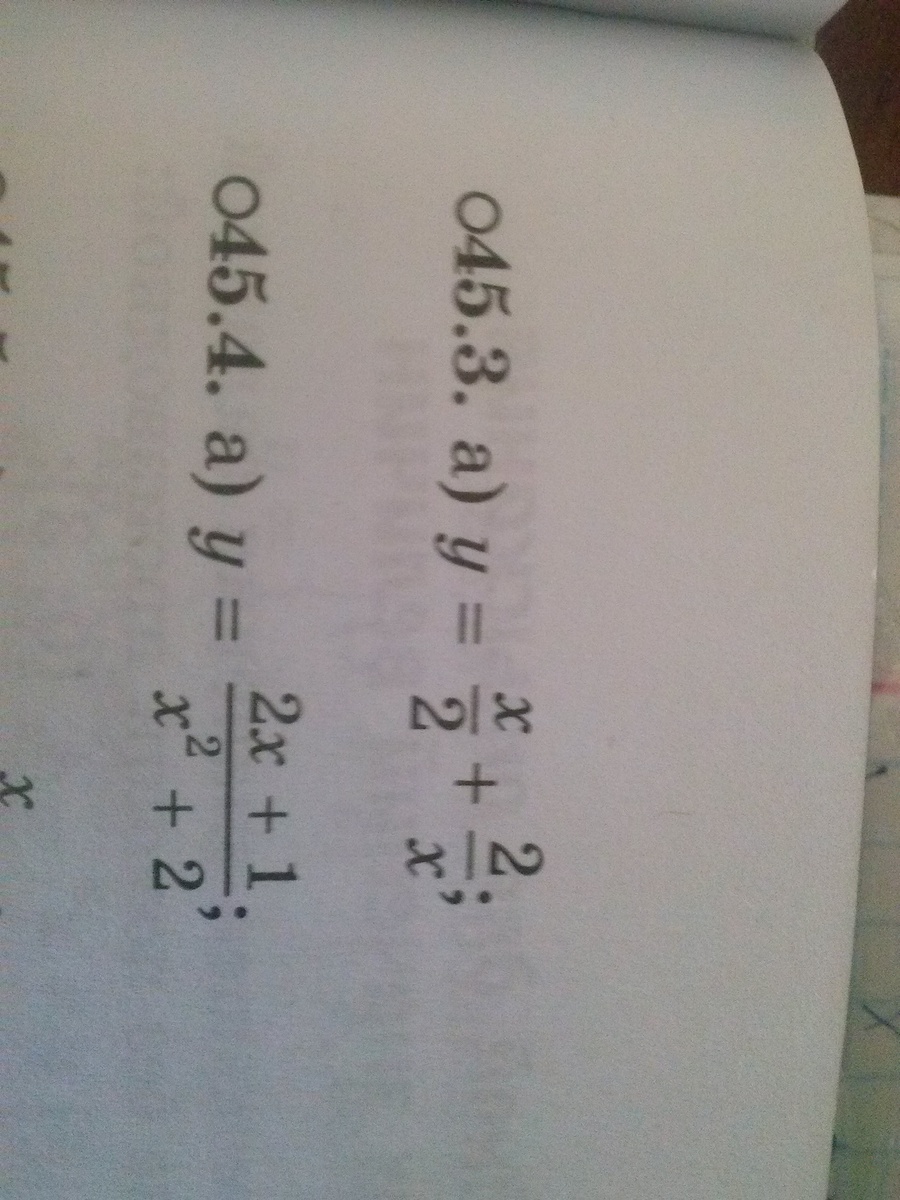 ○45.3. а) y = x/2 + 2/x;
○45.4. а) y = (2x + 1)/(x² + 2);
x